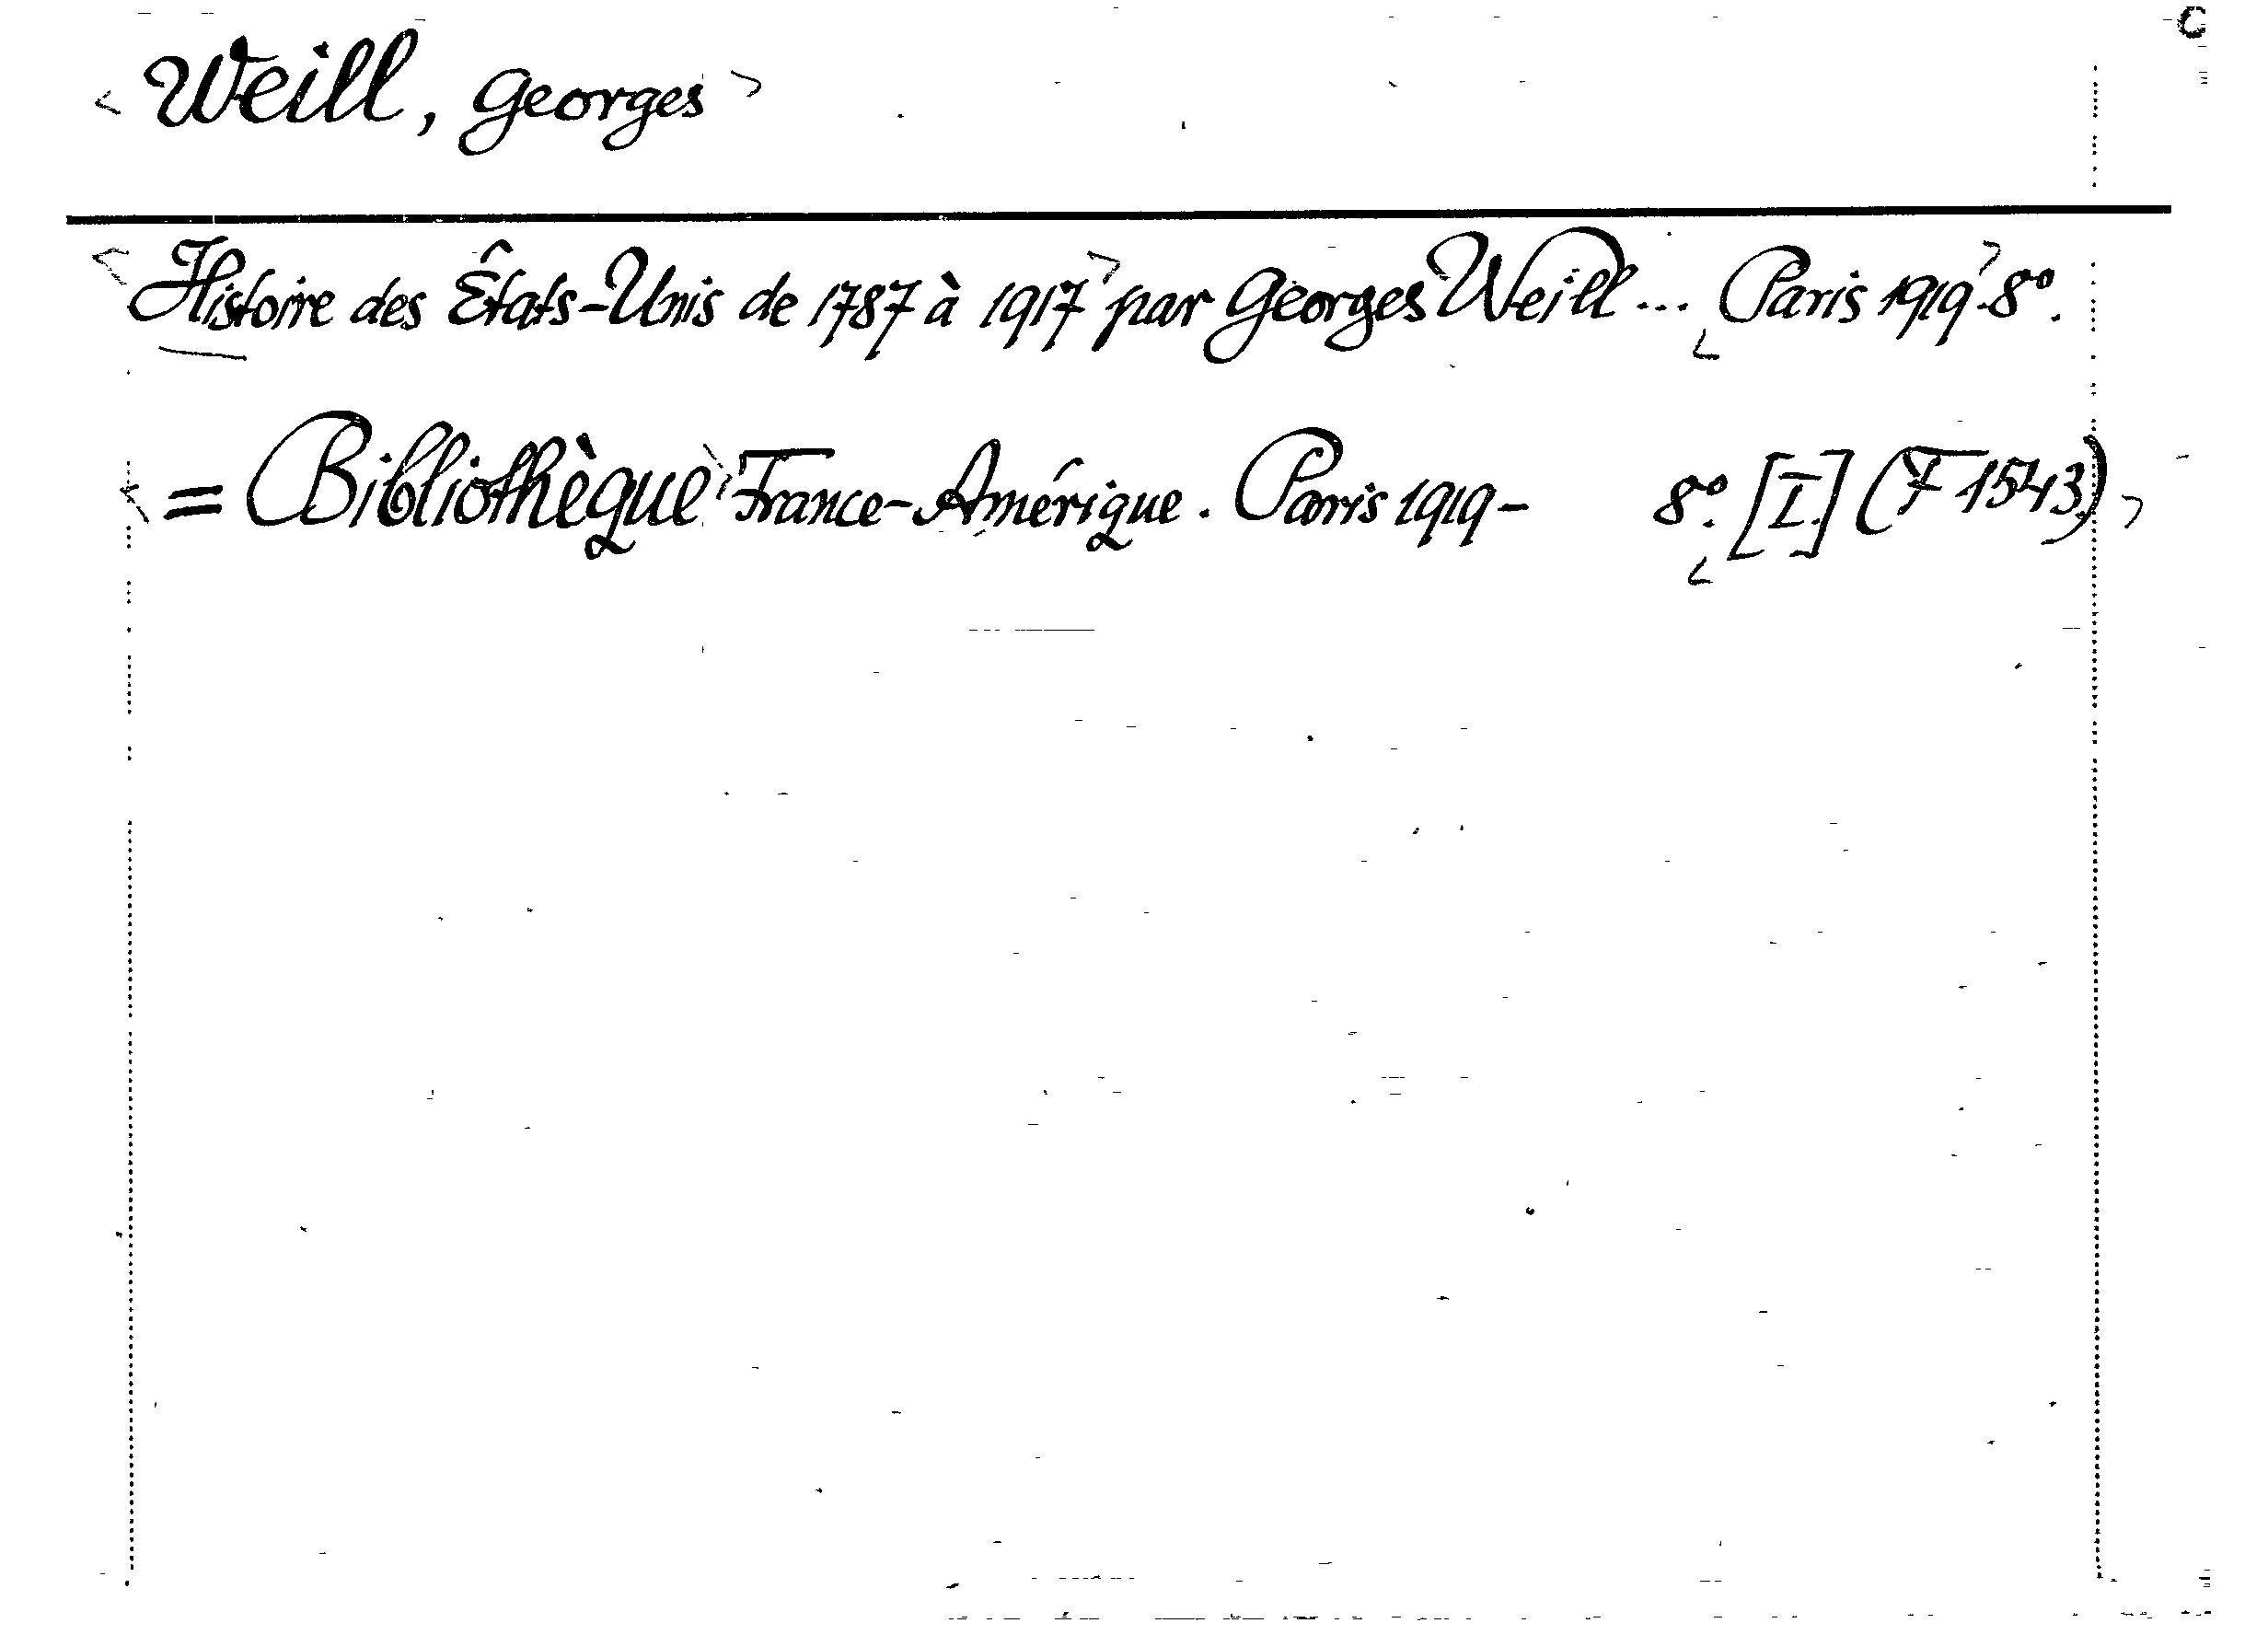 C
< Weill, Georges >
< Histoire des États-Unis de 1787 à 1917 > par Georges Weill ... < Paris 1919 > 8°.
< = Bibliothèque > France-Amérique. Paris 1919- 8°. < [I.] (F 1543) >